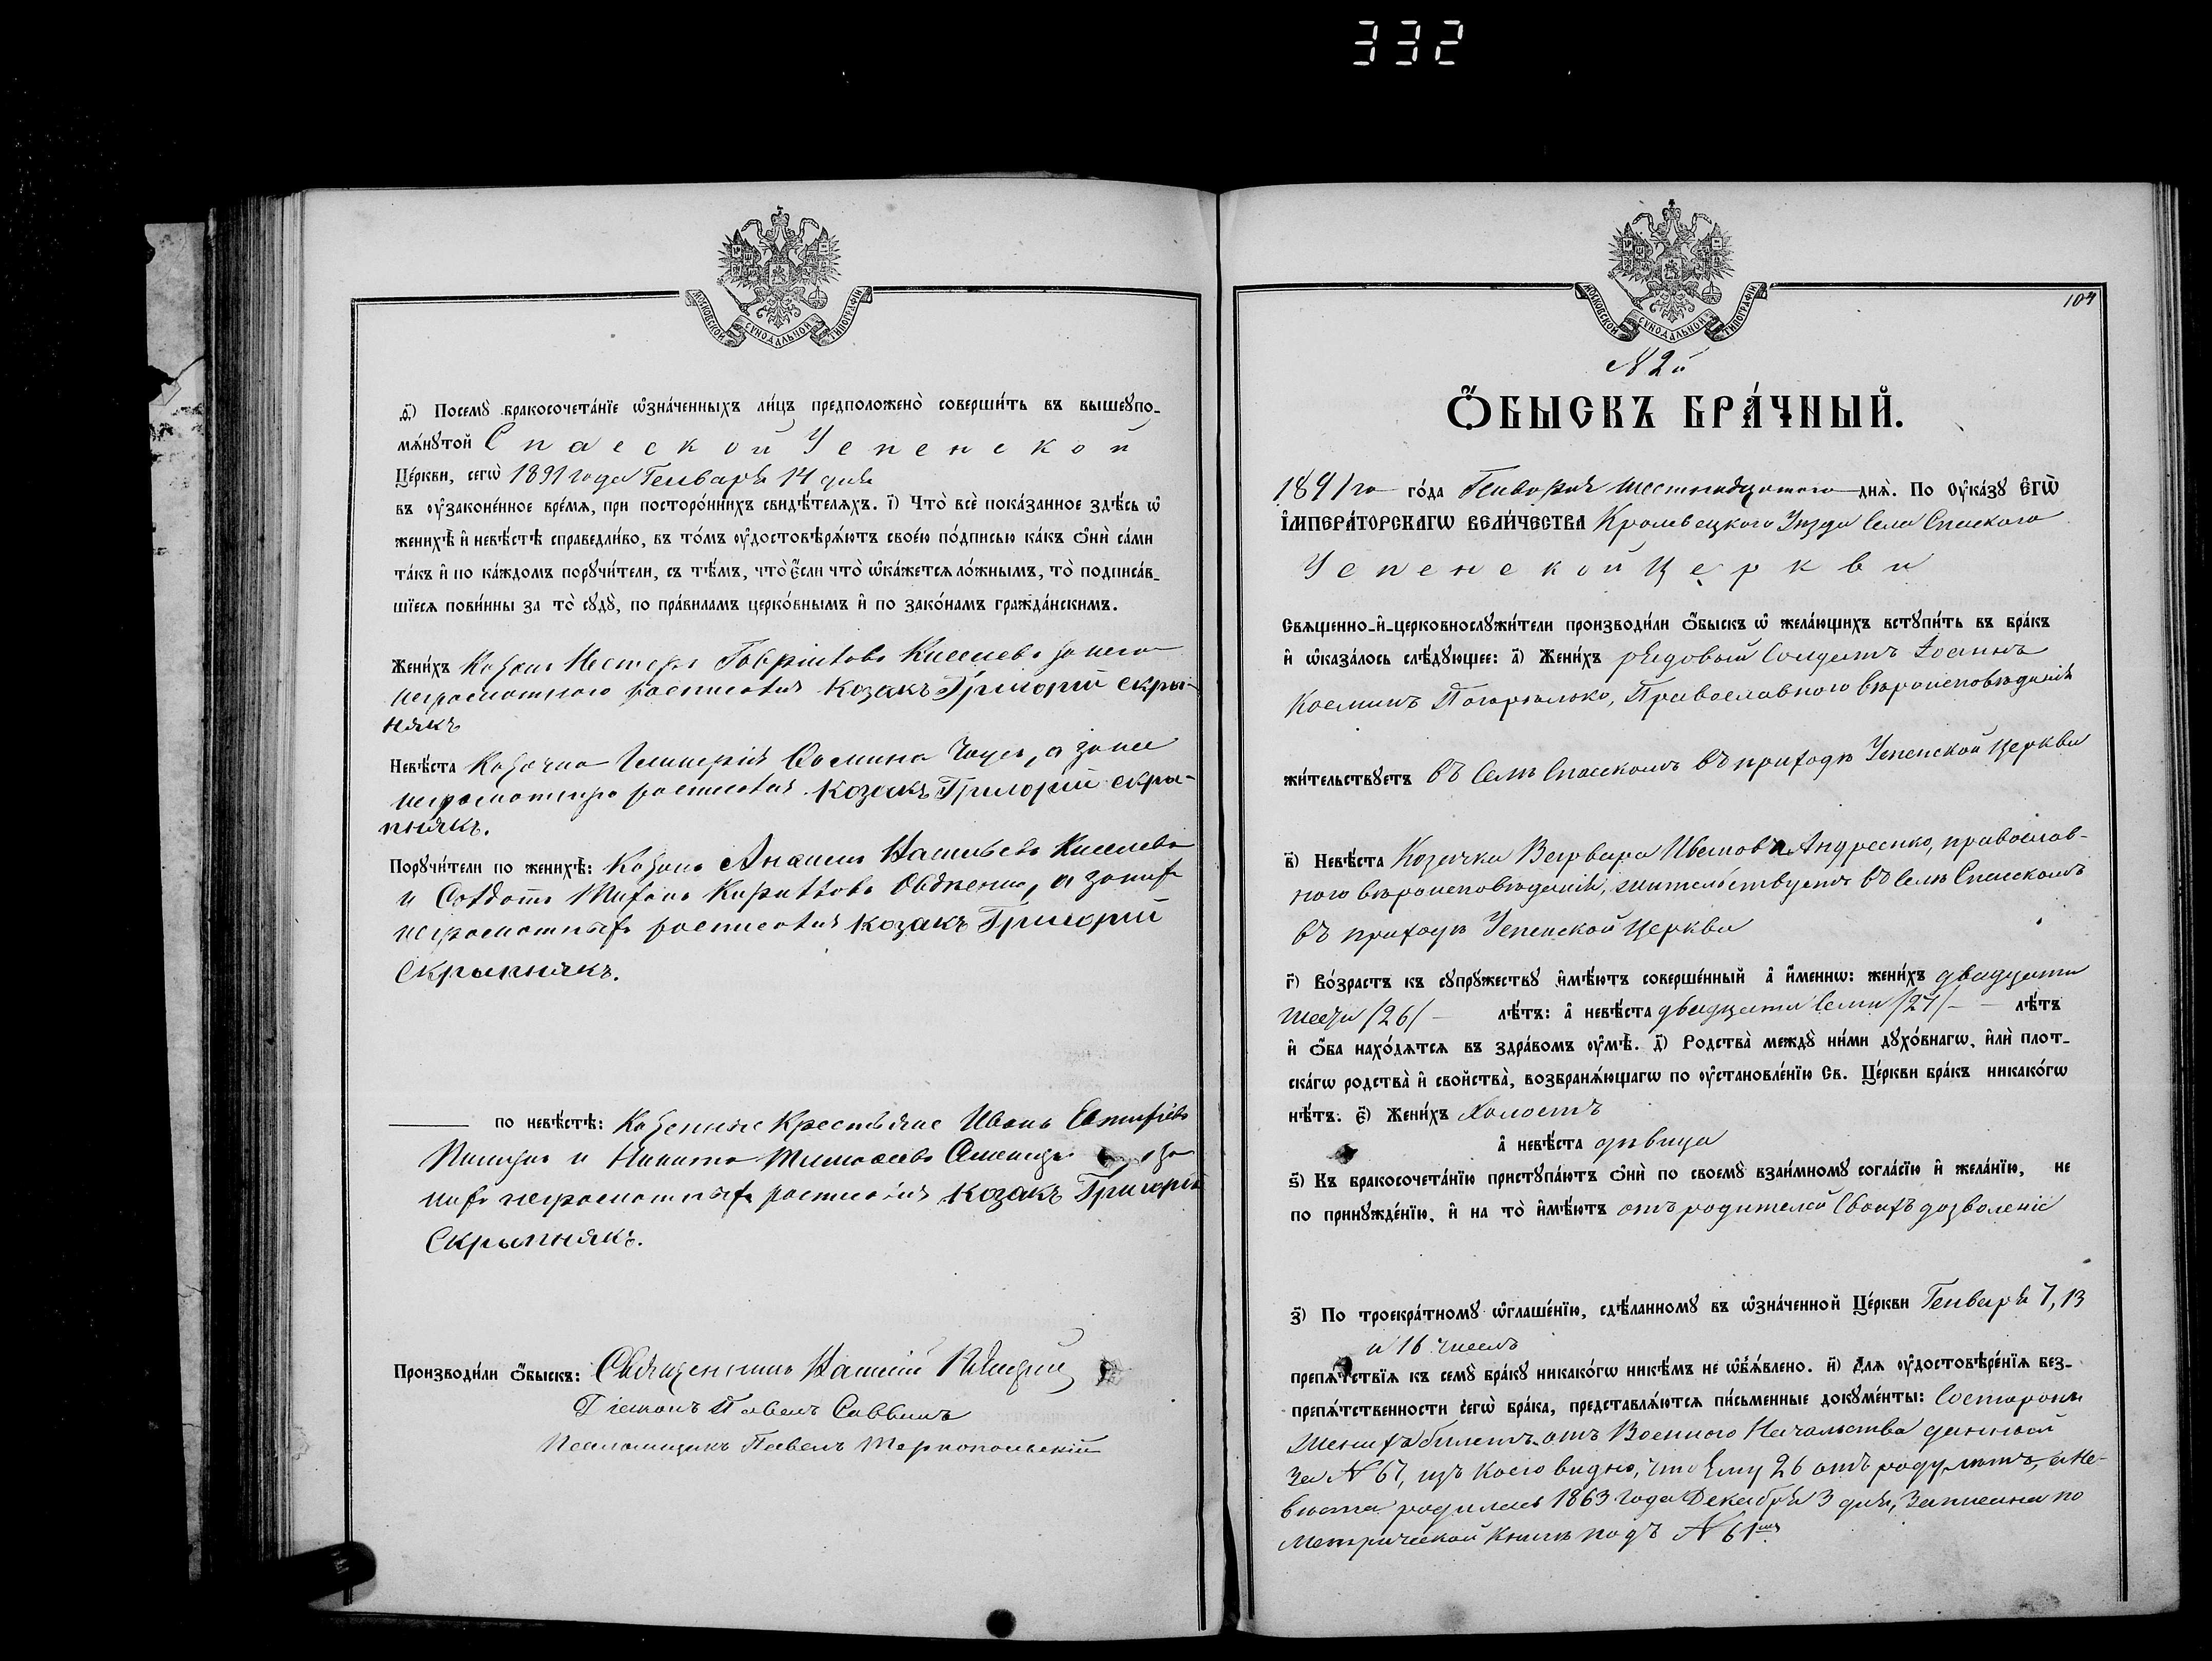 332
МОСКОВСКОЙ СУНОДАЛЬНОЙ ТИПОГРАФІИ
д҃) Посемꙋ̀ бракосочета́нїе ѡ҆зна́ченныхъ ли́цъ предположено̀ соверши́ть въ вышеꙋпо-
мѧ́нꙋтой Спасской Успенской
Це́ркви, сегѡ̀ 1891 года Генваря 14 дня
въ ᲂу҆законе́нное вре́мѧ, при посторо́ннихъ свидѣ́телѧхъ. і҃) Что̀ всѐ пока́занное здѣ́сь ѡ҆
женихѣ̀ и҆ невѣ́стѣ справедли́во, въ то́мъ ᲂу҆достовѣрѧ́ютъ свое́ю по́дписью ка́къ ѻ҆нѝ са́ми
та́къ и҆ по ка́ждомъ порꙋчи́тели, съ тѣ́мъ, что̀ є҆́сли что̀ ѡ҆ка́жетсѧ ло́жнымъ, то̀ подписа́в-
шїесѧ пови́нны за то̀ сꙋдꙋ̀, по пра́виламъ церко́внымъ и҆ по зако́намъ гражда́нскимъ.
Жени́хъ Козакъ Несторъ Гавріиловъ Киселевъ за него
неграмотного росписался Козакъ Григорій Скры-
някъ
Невѣ́ста Козачка Ѳомина а за нее
неграмотную росписался Козакъ Григорій Скры-
пнякъ.
Порꙋчи́тели по женихѣ̀: Козакъ Васильевъ Киселевъ
и Солдатъ Кириловъ а за нихъ
неграмотныхъ росписался Козакъ Григорій
Скрыпнякъ.
по невѣ́стѣ: Крестьяне Иванъ
и Никита а за
нихъ неграмотныхъ росписался Козакъ Григорій
Скрыпнякъ.
Производи́ли ѻ҆́быскъ: Священникъ Василій
Діаконъ Павелъ Саввинъ
Псаломщикъ Павелъ Тарнопольскій
МОСКОВСКОЙ СУНОДАЛЬНОЙ ТИПОГРАФІИ
104
№ 2й
Ѻ҆́БЫСКЪ БРА́ЧНЫЙ.
1891 го го́да Генваря шестнадцатого днѧ̀. По Оу҆ка́зꙋ Є҆ГѠ̀
І҆МПЕРА́ТОРСКАГѠ ВЕЛИ́ЧЕСТВА Кролевецкого Уѣзда Села Спаского
Успенской Церкви
Свѧщенно-и҆-церковнослꙋжи́тели производи́ли ѻ҆́быскъ ѡ҆ жела́ющихъ встꙋпи́ть въ бра́къ
и҆ ѡ҆каза́лось слѣ́дꙋющее: а҃) Жени́хъ рядовый Солдатъ Іоаннъ
Косминъ Погорѣлько, Православного вѣроисповѣданія
жи́тельствꙋетъ въ Селѣ Спасскомъ въ приходѣ Успенской Церкви
в҃) Невѣ́ста Козачка Варвара Иванова Андреенко, православ-
ного вѣроисповѣданія, жительствуетъ въ Селѣ Спасскомъ
въ приходѣ Успенской Церкви
г҃) Во́зрастъ къ сꙋпрꙋ́жествꙋ и҆мѣ́ютъ соверше́нный а҆ и҆́меннѡ: жени́хъ двадцати
шести /26/ лѣ́тъ: а҆ невѣ́ста двадцати Семи /27/ лѣ́тъ
и҆ ѻ҆́ба нахо́дѧтсѧ въ здра́вомъ ᲂу҆мѣ̀. д҃) Родства̀ междꙋ̀ ни́ми дꙋхо́внагѡ, и҆лѝ плот-
ска́гѡ родства̀ и҆ свойства̀, возбранѧ́ющагѡ по ᲂу҆становле́нїю Св. Це́ркви бра́къ никако́гѡ
нѣ́тъ. є҃) Жени́хъ Холостъ
а҆ невѣ́ста дѣвица
ѕ҃) Къ бракосочета́нїю пристꙋпа́ютъ ѻ҆нѝ по своемꙋ̀ взаи́мномꙋ согла́сїю и҆ жела́нїю, не
по принꙋжде́нїю, и҆ на то̀ и҆мѣ́ютъ отъ родителей Своихъ дозволеніе
з҃) По троекра́тномꙋ ѡ҆глаше́нїю, сдѣ́ланномꙋ въ ѡ҆зна́ченной Це́ркви Генваря 7, 13
и 16 числъ
препѧ́тствїѧ къ семꙋ̀ бра́кꙋ никако́гѡ никѣ́мъ не ѡ҆б̾ѧ́влено. и҃) Для ᲂу҆достовѣре́нїѧ без-
препѧ́тственности сегѡ̀ бра́ка, представлѧ́ютсѧ пи́сьменные докꙋме́нты: Состороны
Жениха билетъ отъ Военного Начальства данный
За № 67, изъ коего видно, что Ему 26 отъ роду лѣтъ, а Не-
вѣста родилась 1863 года Декабря 3 дня, Записана по
Метрической Книгѣ подъ № 61мъ